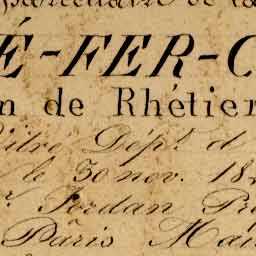 É-FER-C
n de Rhétier
Vitré Dépt. d
le 30 nov. 18
r. Jordan Pr
Pâris Ma